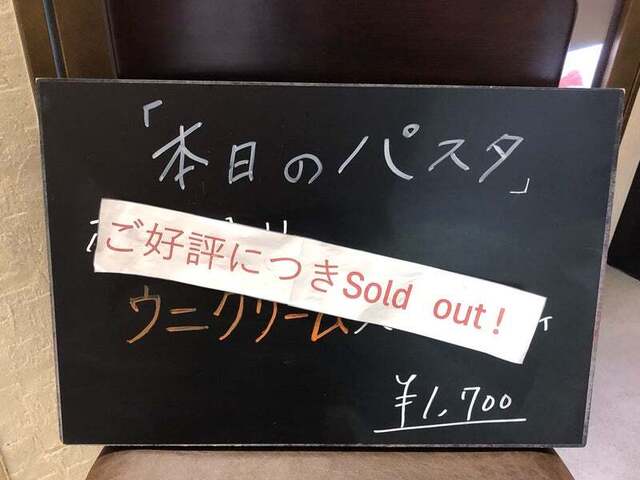 「本日のパスタ」
ご好評につきSold out!
ウニクリーム
¥1,700